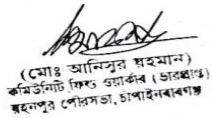 (মোঃ আনিসুর রহমান)
কমিউনিটি ফিল্ড ওয়ার্কার (ভারপ্রাপ্ত)
রহনপুর পৌরসভা, চাঁপাইনবাবগঞ্জ